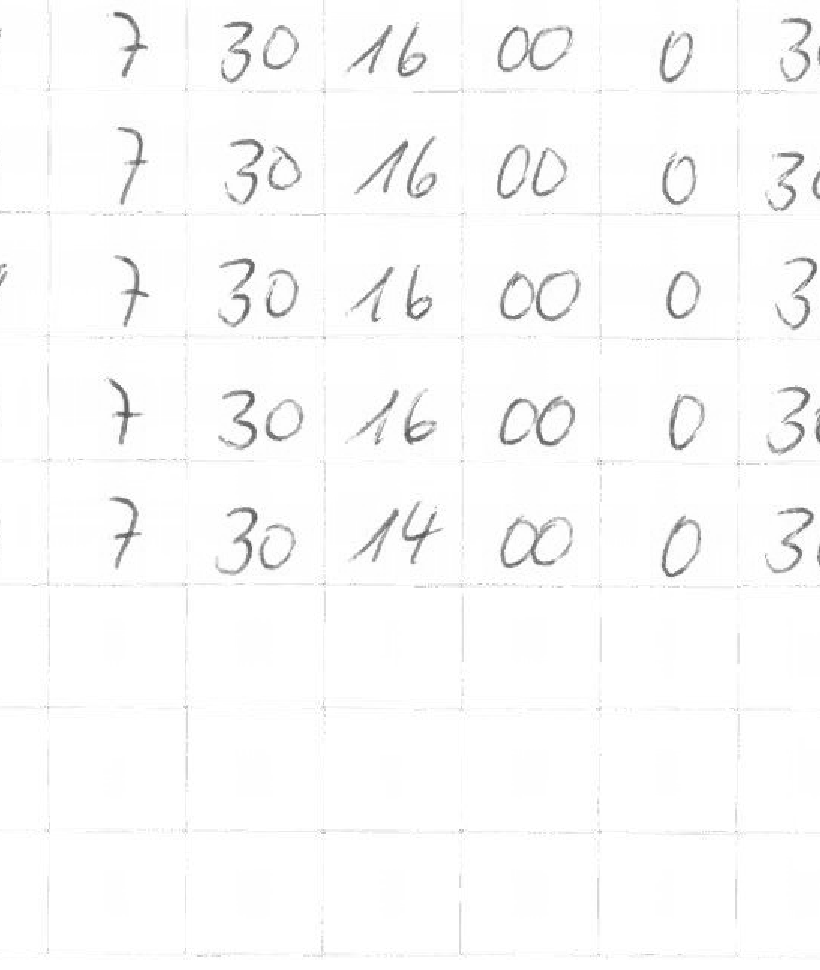 7 30 16 00 0 30
7 30 16 00 0 30
7 30 16 00 0 3
7 30 16 00 0 30
7 30 14 00 0 30